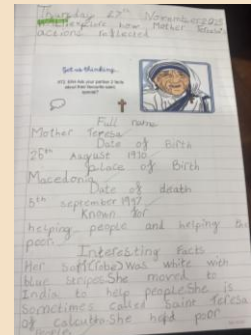 Thursday 27th November 2025
explore how Mother Teresa's
actions reflected
Get us thinking...
your partner 2 facts
about their favourite saint
Full name
Mother Teresa
Date of Birth
26th August 1910
place of Birth
Macedonia
Date of death
5th september 1997
Known for
helping people and helping the
poor
Interesting Facts
Her Sari was white with
blue stripes She moved to
India to help people She is
Sometimes called Saint Teresa
of calcutta She poor